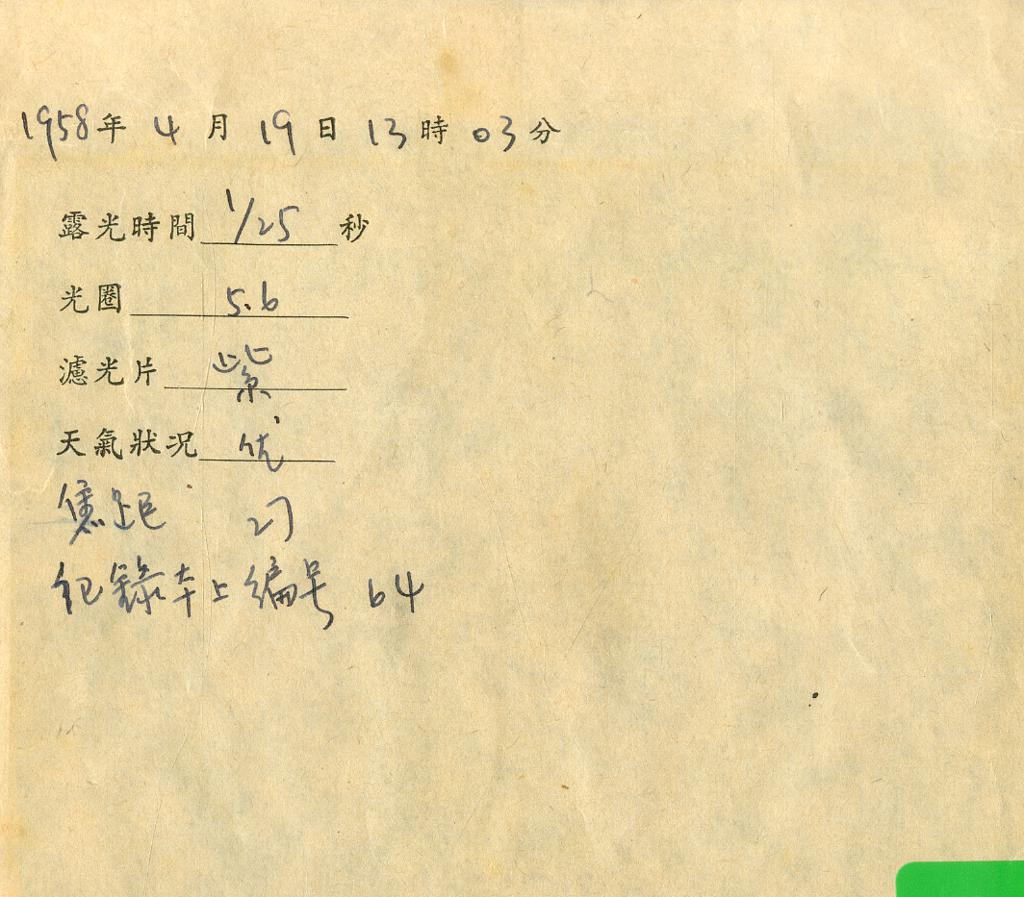 1958年 4 月 19 日 13 時 03 分
露光時間 1/25 秒
光圈 5.6
濾光片 紫
天氣狀况 优
焦距 27
纪錄本上编号 64